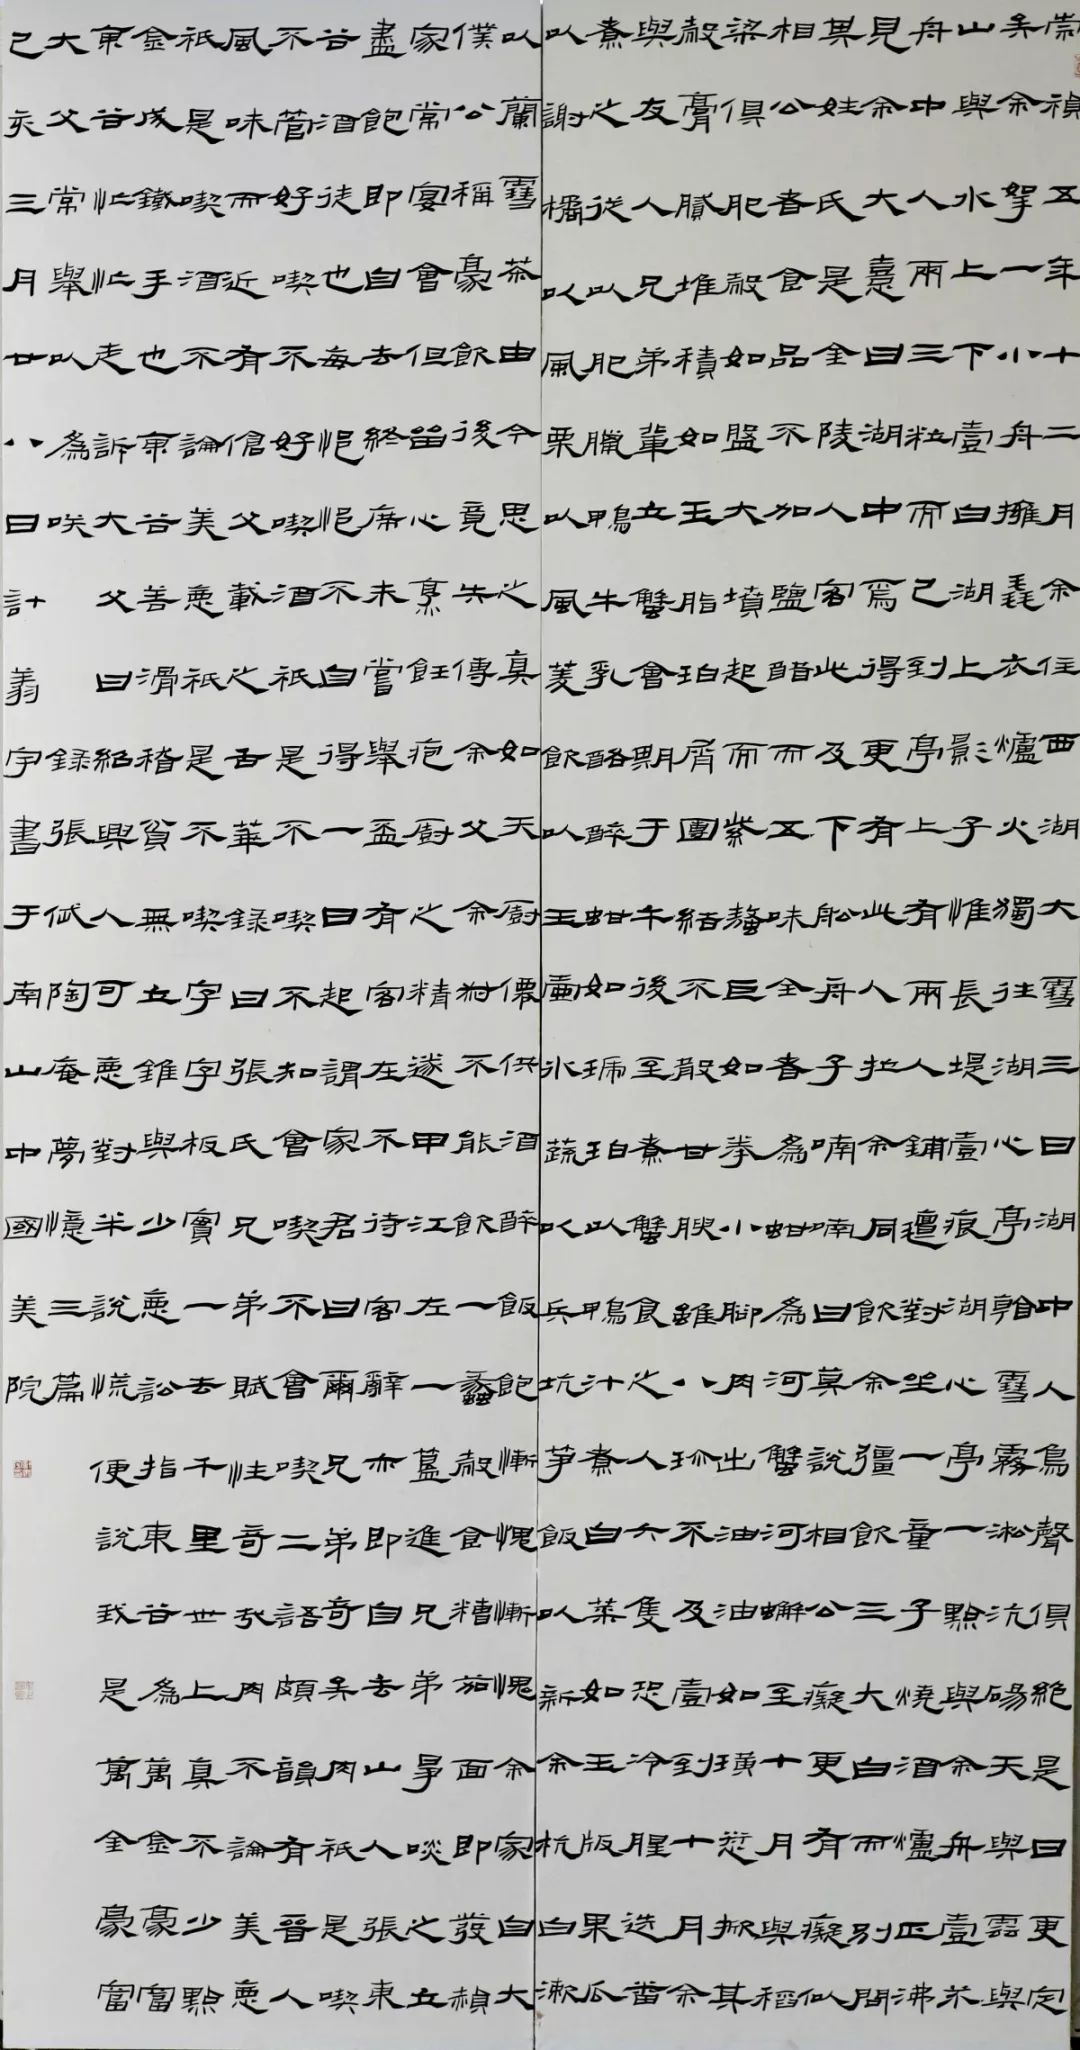 崇禎五年十二月余住西湖大雪三日湖中人鳥聲俱絕是日更定
矣余拏一小舟擁毳衣爐火獨往湖心亭看雪霧凇沆碭天與雲與
山與水上下壹白湖上影子惟長堤壹痕湖心亭一點與余舟壹芥
舟中人兩三粒而已到亭上有兩人鋪氈對坐一童子燒酒爐正沸
見余大喜曰湖中焉得更有此人拉余同飲余彊飲三大白而別問
其姓氏是金陵人客此及下船舟子喃喃曰莫說相公癡更有癡似
相公者食品不加鹽醋而五味全者為蚶為河蟹河蠏至十月與稻
粱俱肥殼如盤大墳起而紫螯巨如拳小腳肉出油油如璜愆掀其
殼膏膩堆積如玉脂珀屑團結不散甘腴雖八珍不及壹到十月余
與友人兄弟輩立蟹會期于午後至煮蟹食之人六隻恐冷腥迭番
煮之從以肥臘鴨牛乳酪醉蚶如琥珀以鴨汁煮白菜如玉版果瓜
以謝橘以風栗以風菱飲以玉壺冰蔬以兵坑筍飯以新余杭白漱
以蘭雪茶由今思之真如天廚僊供酒醉飯飽慚愧慚愧余家自大
僕公稱豪飲後竟失傳余父余叔不能飲一蠡殼食糟茄面即發赬
家常宴會但留心烹飪庖廚之精遂甲江左一簋進兄弟爭啖之立
盡飽即自去終席未嘗舉盃有客在不待客辭亦即自去山人張東
谷酒徒也每悒悒不自得一日起謂家君曰爾兄弟奇矣肉祇是喫
不管好喫不好喫酒祇是不喫不知會喫不會喫二語頗韻有晉人
風味而近有傖父載之舌華錄曰張氏兄弟賦性奇哉肉不論美惡
祇是喫酒不論美惡祇是不喫字字板實一去千里世上真不少點
金成鐵手也東谷善滑稽貧無立錐與少惡訟指東谷為萬金豪富
東谷忙忙走訴大父曰紹興人可惡對半說慌便說我是萬全豪富
大父常舉以為咲 錄張岱陶庵夢憶三篇
己亥三月廿八日翁宇書于南山中國美院